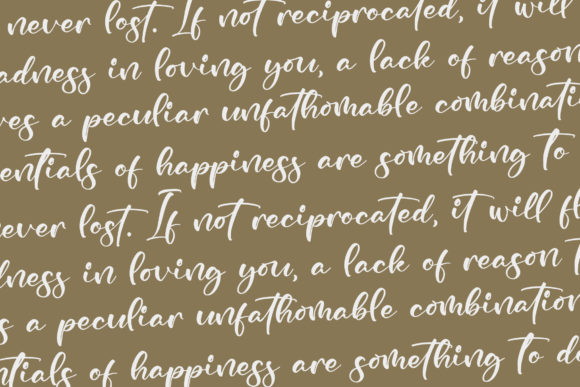 never lost. If not reciprocated, it will
adness in loving you, a lack of reason
ves a peculiar unfathomable combinati
entials of happiness are something to
never lost. If not reciprocated, it will fl
dness in loving you, a lack of reason t
s a peculiar unfathomable combination
ntials of happiness are something to do